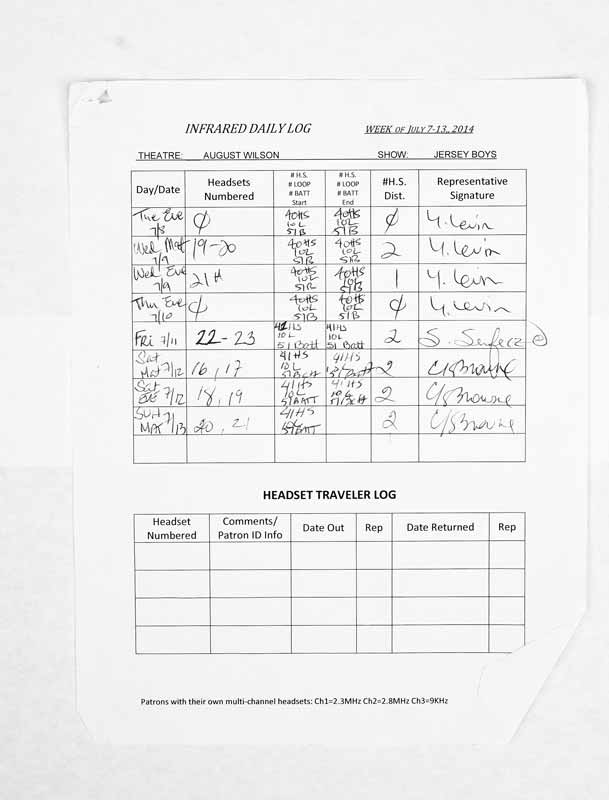 INFRARED DAILY LOG WEEK OF JULY 7-13, 2014
THEATRE: AUGUST WILSON SHOW: JERSEY BOYS
Day/Date
Headsets
Numbered
# H.S.
# LOOP
# BATT
Start
# H.S.
# LOOP
# BATT
End
#H.S.
Dist.
Representative
Signature
Tue Eve
7/8
0
40HS
10L
51B
40HS
10L
51B
0
Y. Levin
Wed, Mat
7/9
19-20
40HS
10L
51B
40HS
10L
51B
2
Y. Levin
Wed Eve
7/9
21H
40HS
10L
51B
40HS
10L
51B
1
Y. Levin
Thu Eve
7/10
0
40HS
10L
51B
40HS
10L
51B
0
Y. Levin
Fri 7/11
22-23
41HS
10L
51 Batt
41HS
10L
51 Batt
2
Sat
Mat 7/12
16, 17
41HS
10L
51Batt
41HS
10L
51Batt
2
C/SBrowne
Sat
EVE 7/12
18, 19
41HS
10L
51BATT
41HS
10L
2
C/SBrowne
SUN 7/13
MAT
20, 21
41HS
10L
51BATT
2
C/SBrowne
HEADSET TRAVELER LOG
Headset
Numbered
Comments/
Patron ID Info
Date Out
Rep
Date Returned
Rep
Patrons with their own multi-channel headsets: Ch1=2.3MHz Ch2=2.8MHz Ch3=9KHz